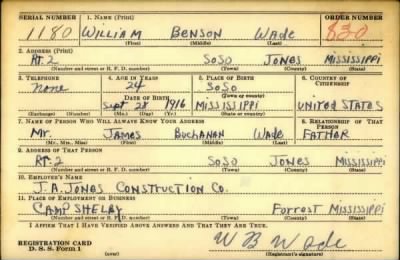 SERIAL NUMBER 1. NAME (Print) ORDER NUMBER
1180 WILLIAM BENSON WADE 830
(First) (Middle) (Last)
2. ADDRESS (Print)
RT. 2 SOSO JONES MISSISSIPPI
(Number and street or R. F. D. number) (Town) (County) (State)
3. TELEPHONE 4. AGE IN YEARS 5. PLACE OF BIRTH 6. COUNTRY OF CITIZENSHIP
None 24 SOSO
DATE OF BIRTH (Town or county)
Sept 28 1916 MISSISSIPPI United STATES
(Exchange) (Number) (Mo.) (Day) (Yr.) (State or country)
7. NAME OF PERSON WHO WILL ALWAYS KNOW YOUR ADDRESS 8. RELATIONSHIP OF THAT PERSON
Mr. JAMES BUCHANAN WADE FATHER
(Mr., Mrs., Miss) (First) (Middle) (Last)
9. ADDRESS OF THAT PERSON
RT. 2 SOSO JONES MISSISSIPPI
(Number and street or R. F. D. number) (Town) (County) (State)
10. EMPLOYER'S NAME
J. A. JONES CONSTRUCTION CO.
11. PLACE OF EMPLOYMENT OR BUSINESS
CAMP SHELBY Forrest MISSISSIPPI
(Number and street or R. F. D. number) (Town) (County) (State)
I AFFIRM THAT I HAVE VERIFIED ABOVE ANSWERS AND THAT THEY ARE TRUE.
REGISTRATION CARD
D. S. S. Form 1 W B Wade
(over) (Registrant's signature)